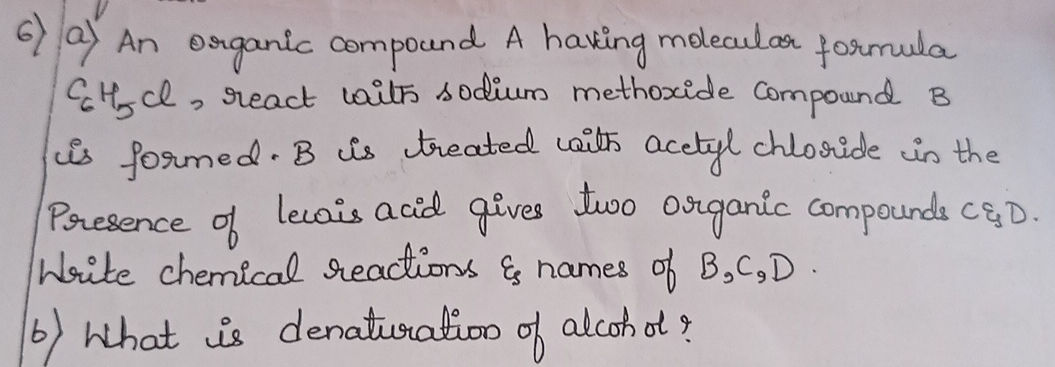 6) a) An organic compound A having molecular formula
C6H5Cl, react with sodium methoxide Compound B
is formed. B is treated with acetyl chloride in the
Presence of lewis acid gives two organic compounds C & D.
Write chemical reactions & names of B, C, D.
b) What is denaturation of alcohol?